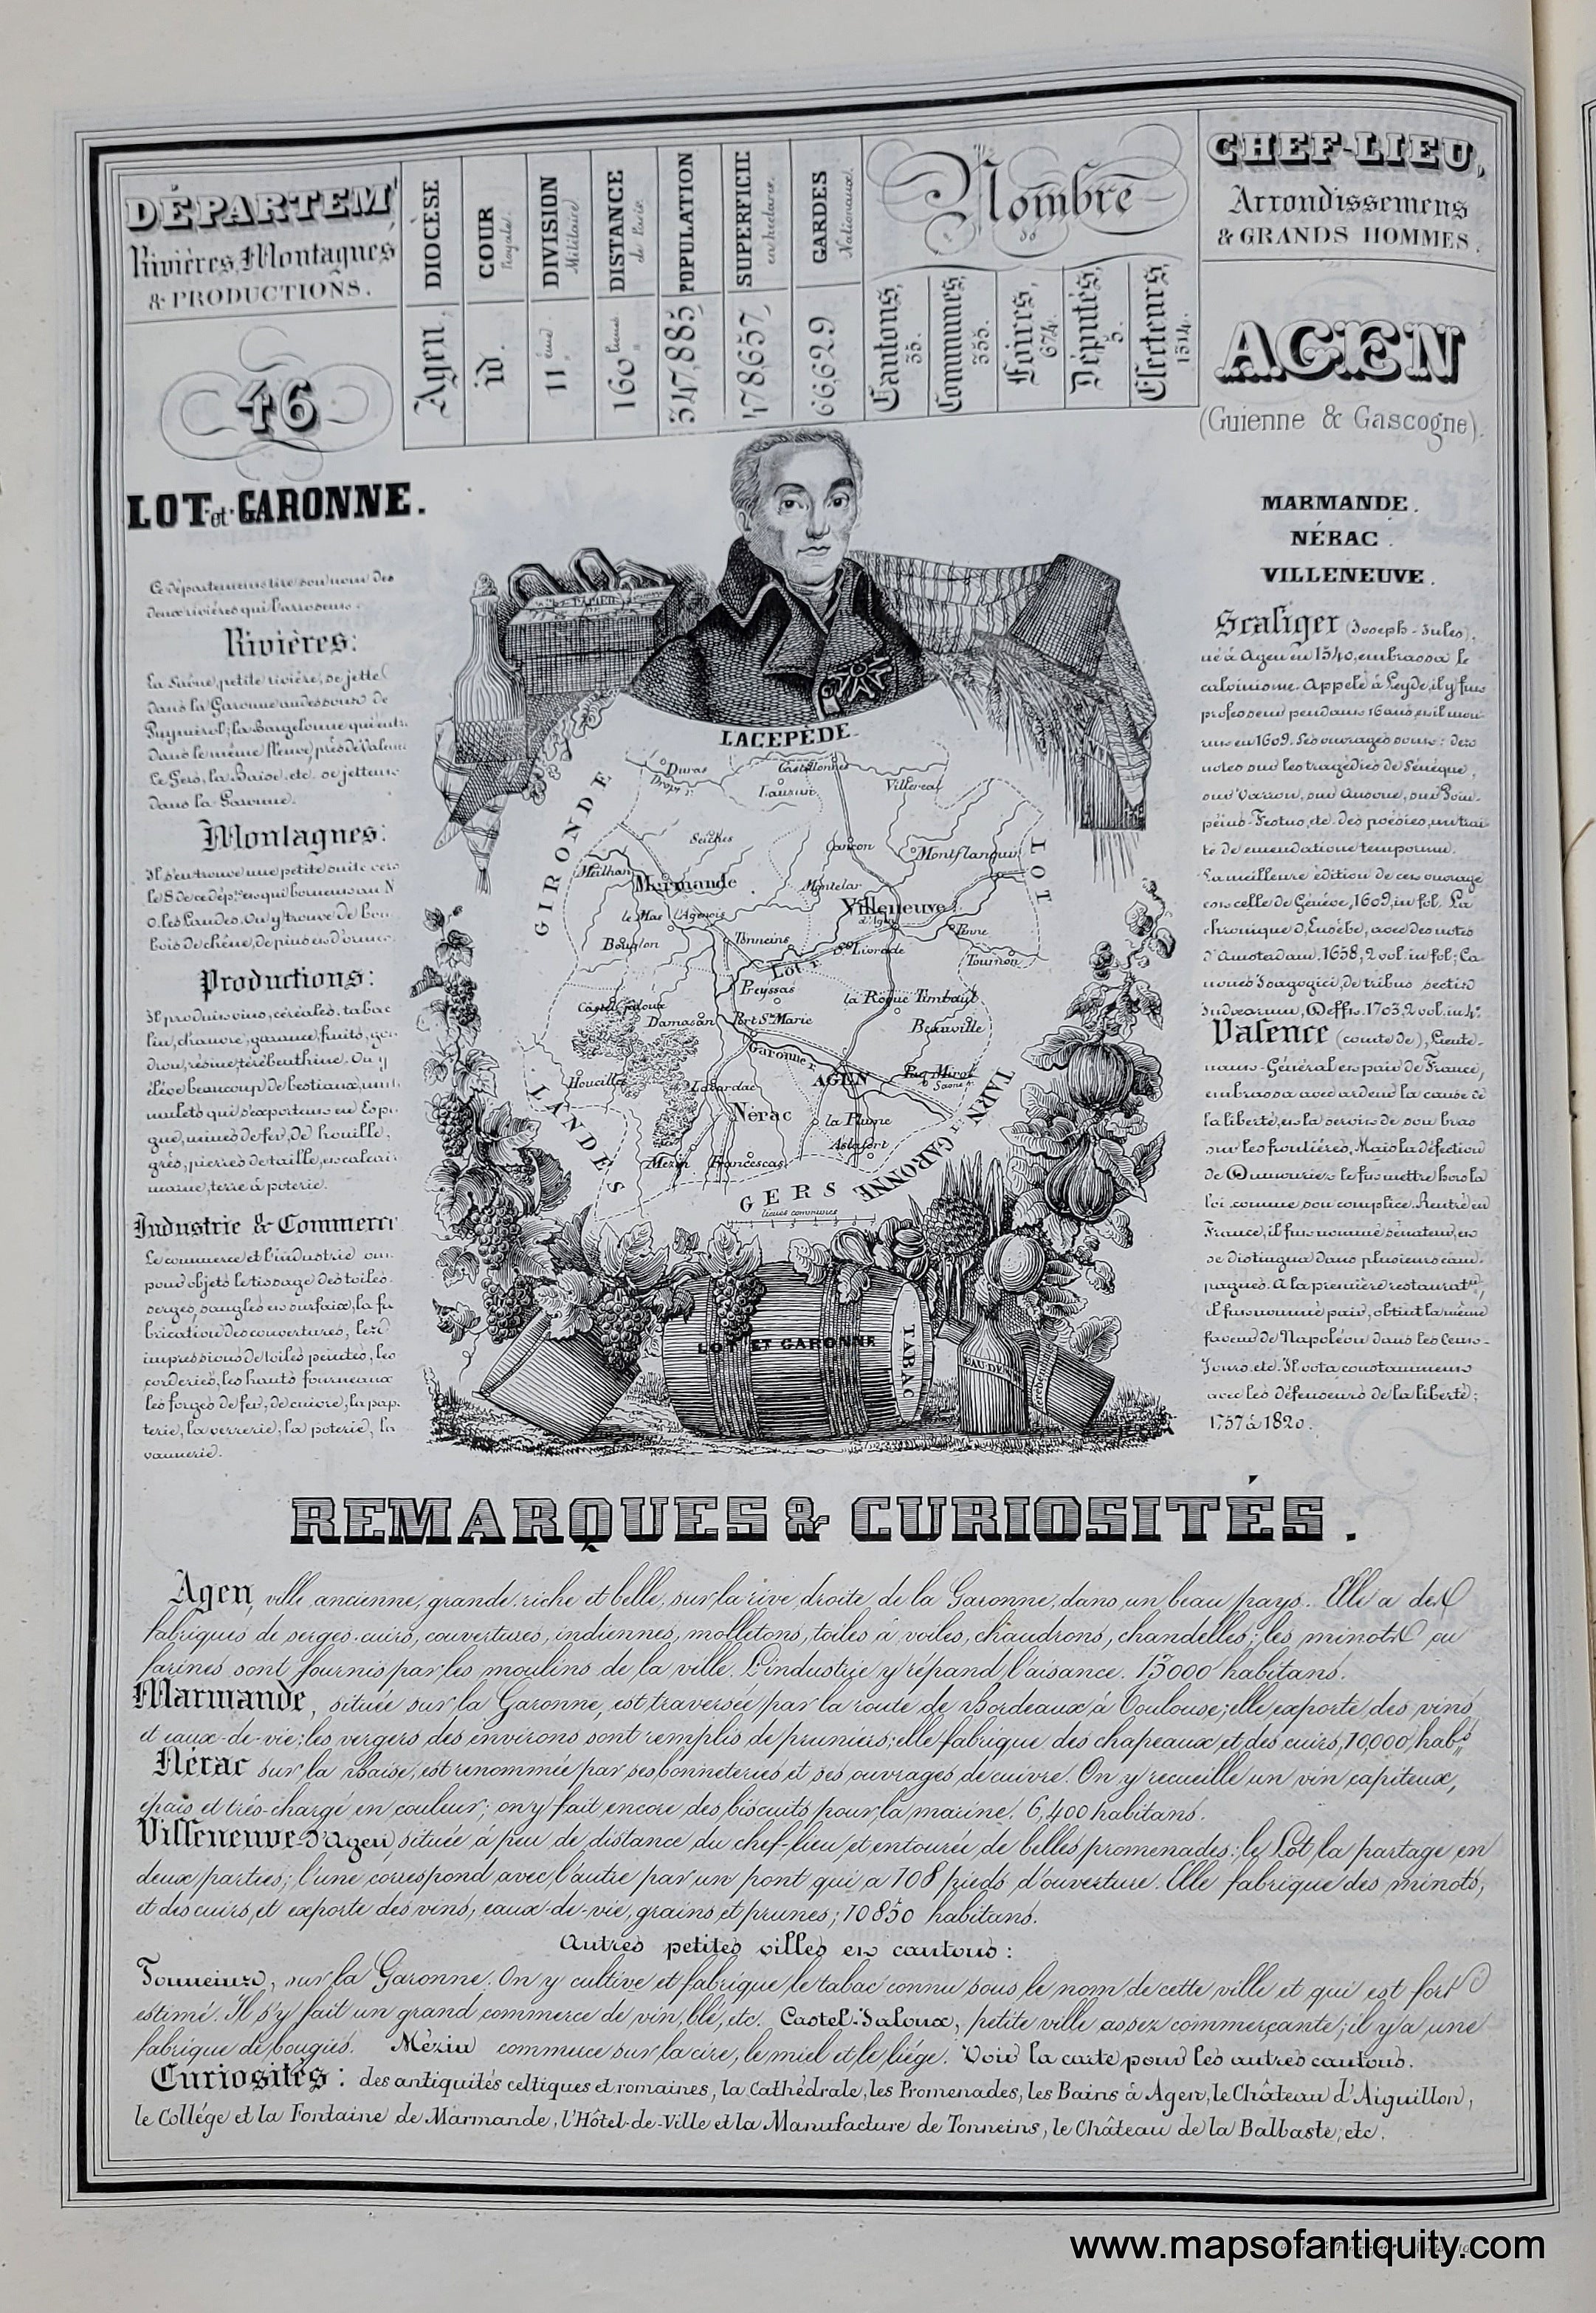 DÉPARTEMᵗ
Rivières, Montagnes
& PRODUCTIONS.
46
DIOCÈSE
Agen,
COUR
Royale.
id.
DIVISION
Militaire
11 ème
DISTANCE
de Paris
160 lieues
POPULATION
347,885
SUPERFICIE
en hectares.
478,657
GARDES
Nationaux.
66,629
Nombre
de
Cantons,
35.
Communes,
355.
Foires,
674.
Députés,
5.
Electeurs,
1514.
CHEF-LIEU,
Arrondissemens
& GRANDS HOMMES.
AGEN
(Guienne & Gascogne).
LOT et GARONNE.
Ce département tire son nom des
deux rivières qui l'arrosent.
Rivières:
La Saône, petite rivière, se jette
dans la Garonne au dessous de
Puymirol; la Bargelonne qui entr
dans le même fleuve, près de Valenc
Le Gers, la Baise, etc. se jettent
dans la Garonne.
Montagnes:
Il s'en trouve une petite suite vers
le S de ce dépᵗ et qui bornent au N
O. les Landes. On y trouve de bon
bois de chêne, de pins et d'ormes.
Productions:
Il produit vins, céréales, tabac
lin, chanvre, garance, fruits, gou
dron, résine, térébenthine. On y
élève beaucoup de bestiaux, un
mulets qui s'exportent en Espa
gne, mines de fer, de houille,
grès, pierres de taille, et calcair
marne, terre à poterie.
Industrie & Commerce
Le commerce et l'industrie ont
pour objets le tissage des toiles.
serges, sangles et surfaix, la fa
brication des couvertures, les
impressions de toiles peintes, les
corderies, les hauts fourneaux
les forges de fer, de cuivre, la pap
terie, la verrerie, la poterie, la
vannerie.
LACEPÈDE.
GIRONDE
LOT
LANDES
GERS
TARN et GARONNE
Duras
Dropt r.
Castillonnès
Lauzun
Villereal
Seiches
Cancon
Montflanquin
Meilhan
Marmande
Montclar
Villeneuve
d'Agen
le Mas l'Agenois
Bouglon
Tonneins
Ste Livrade
Penne
Tournon
Lot r.
Preyssas
la Roque Timbaut
Castel Jaloux
Damasan
Port Ste Marie
Beauville
Garonne r.
Houeillès
Lavardac
AGEN
Puy Mirol
Saone r.
Nérac
la Plume
Astafort
Mezin
Francescas
lieues communes
LOT ET GARONNE
TABAC
EAU-DE-VIE
MARMANDE.
NÉRAC.
VILLENEUVE.
Scaliger (Joseph-Jules),
né à Agen en 1540, embrassa le
calvinisme. Appelé à Leyde, il y fut
professeur pendant 16 ans, et il mou-
rut en 1609. Ses ouvrages sont: des
notes sur les tragédies de Sénèque,
sur Varron, sur Ausone, sur Pom-
péius-Festus, etc. des poésies, un trai-
té de emendatione temporum.
La meilleure édition de ces ouvrages
est celle de Genève, 1609, in fol. La
chronique d'Eusèbe, avec des notes
d'Amsterdam, 1658, 2 vol. in fol; Ca-
nones Isagogici, de tribus sectis
Judæorum, Delfts. 1703, 2 vol. in 4°.
Valence (comte de), Lieute-
nant-Général et pair de France,
embrassa avec ardeur la cause de
la liberté, et la servit de son bras
sur les frontières. Mais la défection
de Dumouriez le fit mettre hors la
loi, comme son complice. Rentré en
France, il fut nommé sénateur, et
se distingua dans plusieurs cam-
pagnes. A la première restauratⁿ,
il fut nommé pair, obtint la même
faveur de Napoléon dans les Cent-
Jours, etc. Il vota constamment
avec les défenseurs de la liberté;
1757 à 1820.
REMARQUES & CURIOSITÉS.
Agen, ville ancienne, grande, riche et belle, sur la rive droite de la Garonne, dans un beau pays. Elle a des
fabriques de serges, cuirs, couvertures, indiennes, molletons, toiles à voiles, chaudrons, chandelles; les minots ou
farines sont fournis par les moulins de la ville. L'industrie y répand l'aisance. 13000 habitans.
Marmande, située sur la Garonne, est traversée par la route de Bordeaux à Toulouse; elle exporte des vins,
et eaux-de-vie; les vergers des environs sont remplis de pruniers; elle fabrique des chapeaux et des cuirs; 10,000 habᵗˢ
Nérac sur la Baise, est renommée par ses bonneteries et ses ouvrages de cuivre. On y recueille un vin capiteux,
épais et très-chargé en couleur; on y fait encore des biscuits pour la marine. 6,400 habitans.
Villeneuve-d'Agen, située à peu de distance du chef-lieu et entourée de belles promenades; le Lot la partage en
deux parties; l'une correspond avec l'autre par un pont qui a 108 pieds d'ouverture. Elle fabrique des minots,
et des cuirs, et exporte des vins, eaux-de-vie, grains et prunes; 10850 habitans.
Autres petites villes et cantons:
Tonneins, sur la Garonne. On y cultive et fabrique le tabac connu sous le nom de cette ville et qui est fort
estimé. Il s'y fait un grand commerce de vin, blé, etc. Castel-Jaloux, petite ville assez commerçante; il y a une
fabrique de bougies. Mézin commerce sur la cire, le miel et le liége. Voir la carte pour les autres cantons.
Curiosités: des antiquités celtiques et romaines, la Cathédrale, les Promenades, les Bains à Agen, le Château d'Aiguillon,
le Collége et la Fontaine de Marmande, l'Hôtel-de-Ville et la Manufacture de Tonneins, le Château de la Balbaste, etc.
www.mapsofantiquity.com